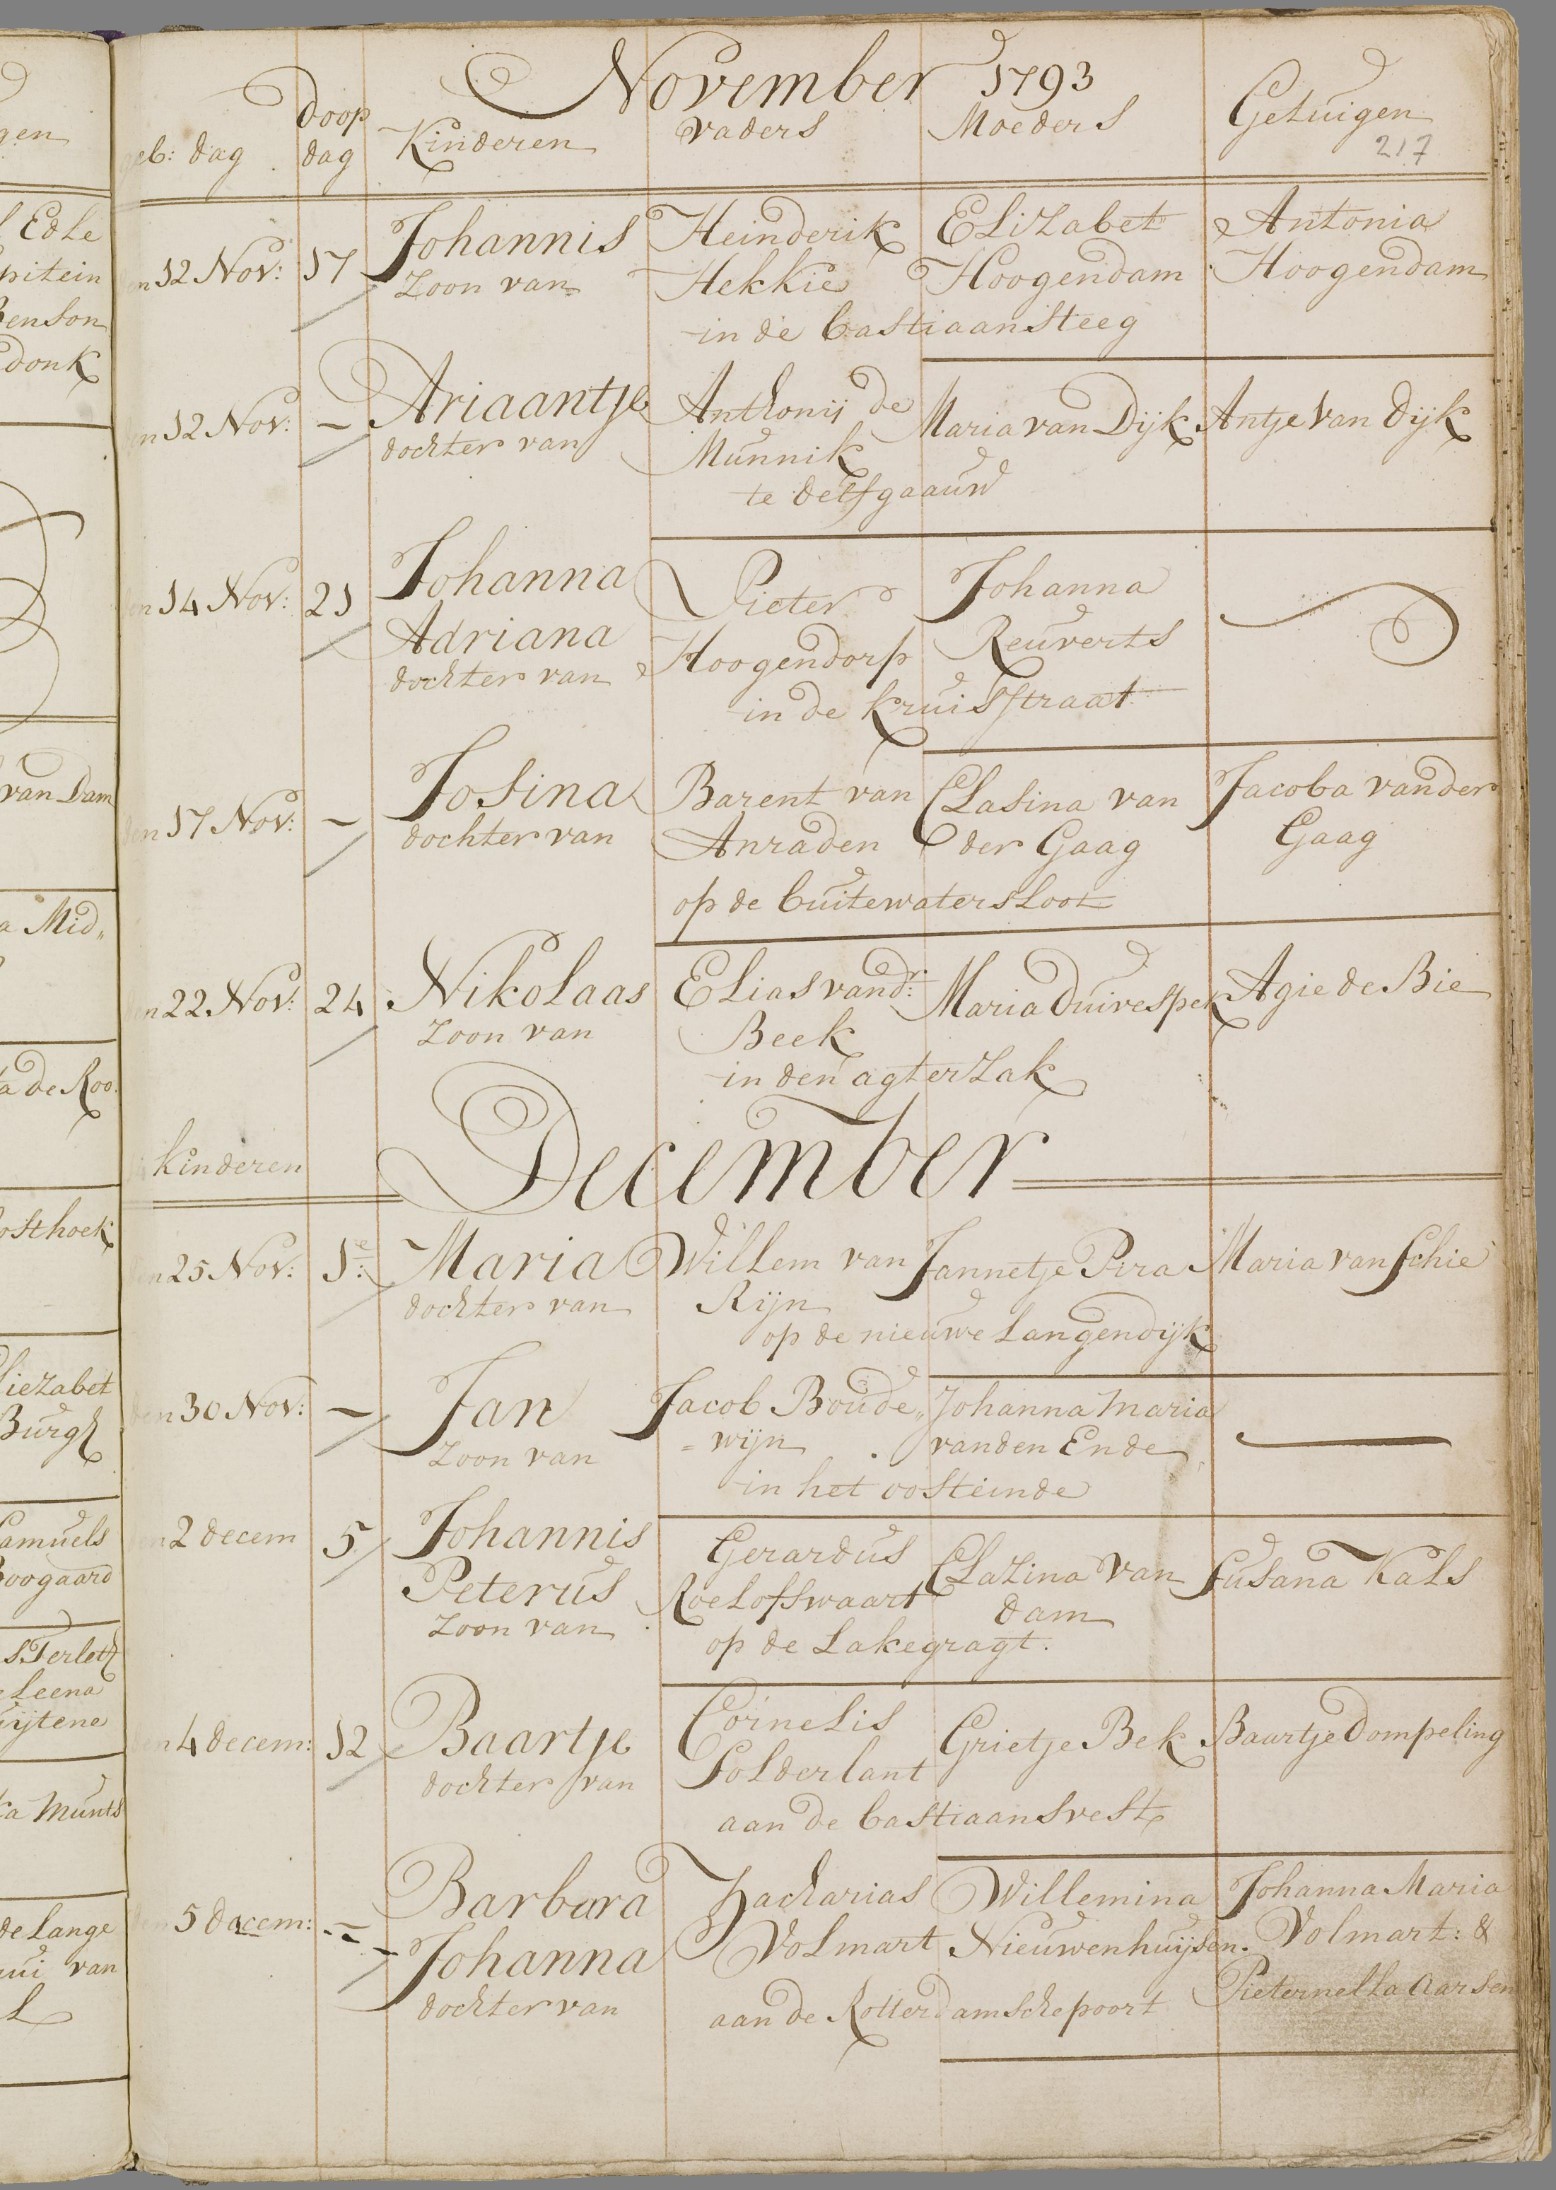 November 1793
geb: dag doop dag Kinderen vaders Moeders Getuigen
217
den 12 Nov: 17 Johannis Heinderik Elizabet Antonia
Zoon van Hekkie Hoogendam Hoogendam
in de bastiaansteeg
den 12 Nov: - Ariaantje Anthonij de Maria van Dijk Antje van Dijk
dochter van Munnik
te delfgaauw
den 14 Nov: 21 Johanna Pieter Johanna
Adriana Hoogendorp Reuverts
dochter van
in de kruisstraat
den 17 Nov: - Josina Barent van Clasina van Jacoba vander
dochter van Anraden der Gaag Gaag
op de buitewatersloot
den 22 Nov: 24 Nikolaas Elias vandr: Maria Duivespek Agie de Bie
Zoon van Beek
in den agterzak
kinderen
December
den 25 Nov: 1e: Maria Willem van Jannetje Pira Maria van Schie
dochter van Rijn
op de nieuwe Langendijk
den 30 Nov: - Jan Jacob Boude„ Johanna Maria
Zoon van = wijn vanden Ende
in het oosteinde
den 2 decem 5 Johannis Gerardus Clazina van Susana Kals
Peterus Roelofswaart dam
Zoon van op de Lakegragt.
den 4 decem: 12 Baartje Cornelis Grietje Bek Baartje Dompeling
dochter van Polderlant
aan de bastiaansvest
den 5 decem: -- Barbara Zacharias Willemina Johanna Maria
Johanna Volmart Nieuwenhuijsen. Volmart: &
dochter van aan de Rotterdamschepoort Pieternella Aarsen
gen
Edle
pitein
Benson
donk
van Dam
a Mid„
a de Roo.
osthoek
liezabet
Burgh
Samuels
Boogaard
s Terleth
Leena
uijtene
ka Munts
de Lange
van
L